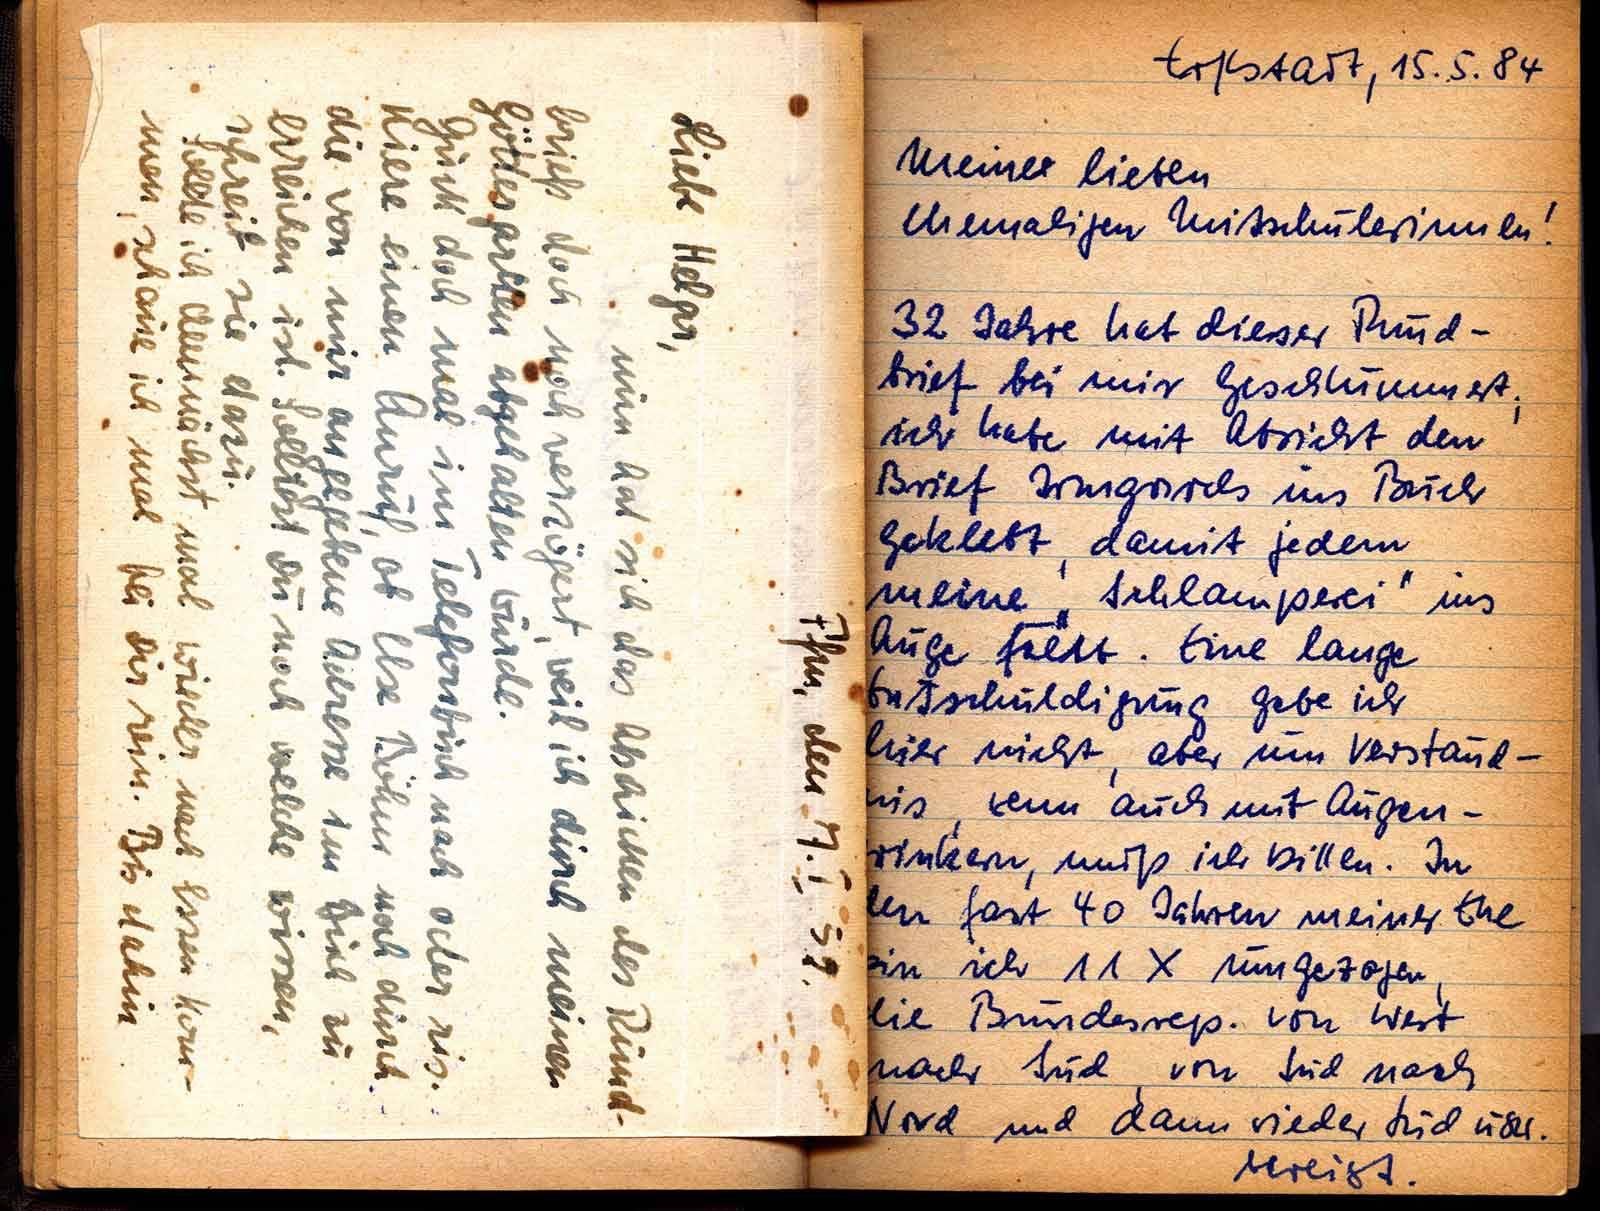 den M. I 52.
Liebe Helga,
nun hat sich das Abschicken des Rund-
briefs doch noch verzögert, weil ich durch meinen
abgehalten würde.
Guck doch mal im Telefonbuch nach oder ris-
kiere einen Anruf, ob Ilse Böhm noch durch
die von mir angegebene Adresse im Buch zu
erreichen ist. Solltest Du noch welche wissen,
schreib sie dazu.
Sollte ich demnächst mal wieder nach Essen kom-
men, schaue ich mal bei dir rein. Bis dahin
Erftstadt, 15.5.84
Meine lieben
ehemaligen Mitschülerinnen!
32 Jahre hat dieser Rund-
brief bei mir geschlummert;
ich habe mit Absicht den
Brief Irmgards ins Buch
geklebt, damit jedem
meine „Schlamperei" ins
Auge fällt. Eine lange
Entschuldigung gebe ich
hier nicht, aber um Verständ-
nis, wenn auch mit Augen-
winkern, muß ich bitten. In
den fast 40 Jahren meiner Ehe
bin ich 11 X umgezogen,
die Bundesrep. von West
nach Süd, von Süd nach
Nord und dann wieder Süd über.
bereist.